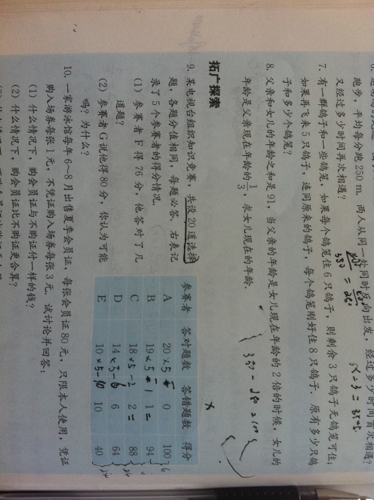 跑步，平均每分跑250 m，两人从同一处同时反向出发，经过多少时间首次相遇？
又经过多少时间再次相遇？
7. 有一群鸽子和一些鸽笼，如果每个鸽笼住6只鸽子，则剩余3只鸽子无鸽笼可住；
如果再飞来5只鸽子，连同原来的鸽子，每个鸽笼刚好住8只鸽子．原有多少只鸽
子和多少个鸽笼？
8. 父亲和女儿的年龄之和是91，当父亲的年龄是女儿现在年龄的2倍的时候，女儿的
年龄是父亲现在年龄的1/3，求女儿现在的年龄．
拓广探索
9. 某电视台组织知识竞赛，共设20道选择
题，各题分值相同，每题必答．右表记
录了5个参赛者的得分情况．
（1）参赛者F得76分，他答对了几
道题？
（2）参赛者G说他得80分，你认为可能
吗？为什么？
参赛者 答对题数 答错题数 得分
A 20 0 100
B 19 1 94
C 18 2 88
D 14 6 64
E 10 10 40
10. 一家游泳馆每年6～8月出售夏季会员证，每张会员证80元，只限本人使用，凭证
购入场券每张1元，不凭证购入场券每张3元．试讨论并回答：
（1）什么情况下，购会员证与不购证付一样的钱？
（2）什么情况下，购会员证比不购证更合算？